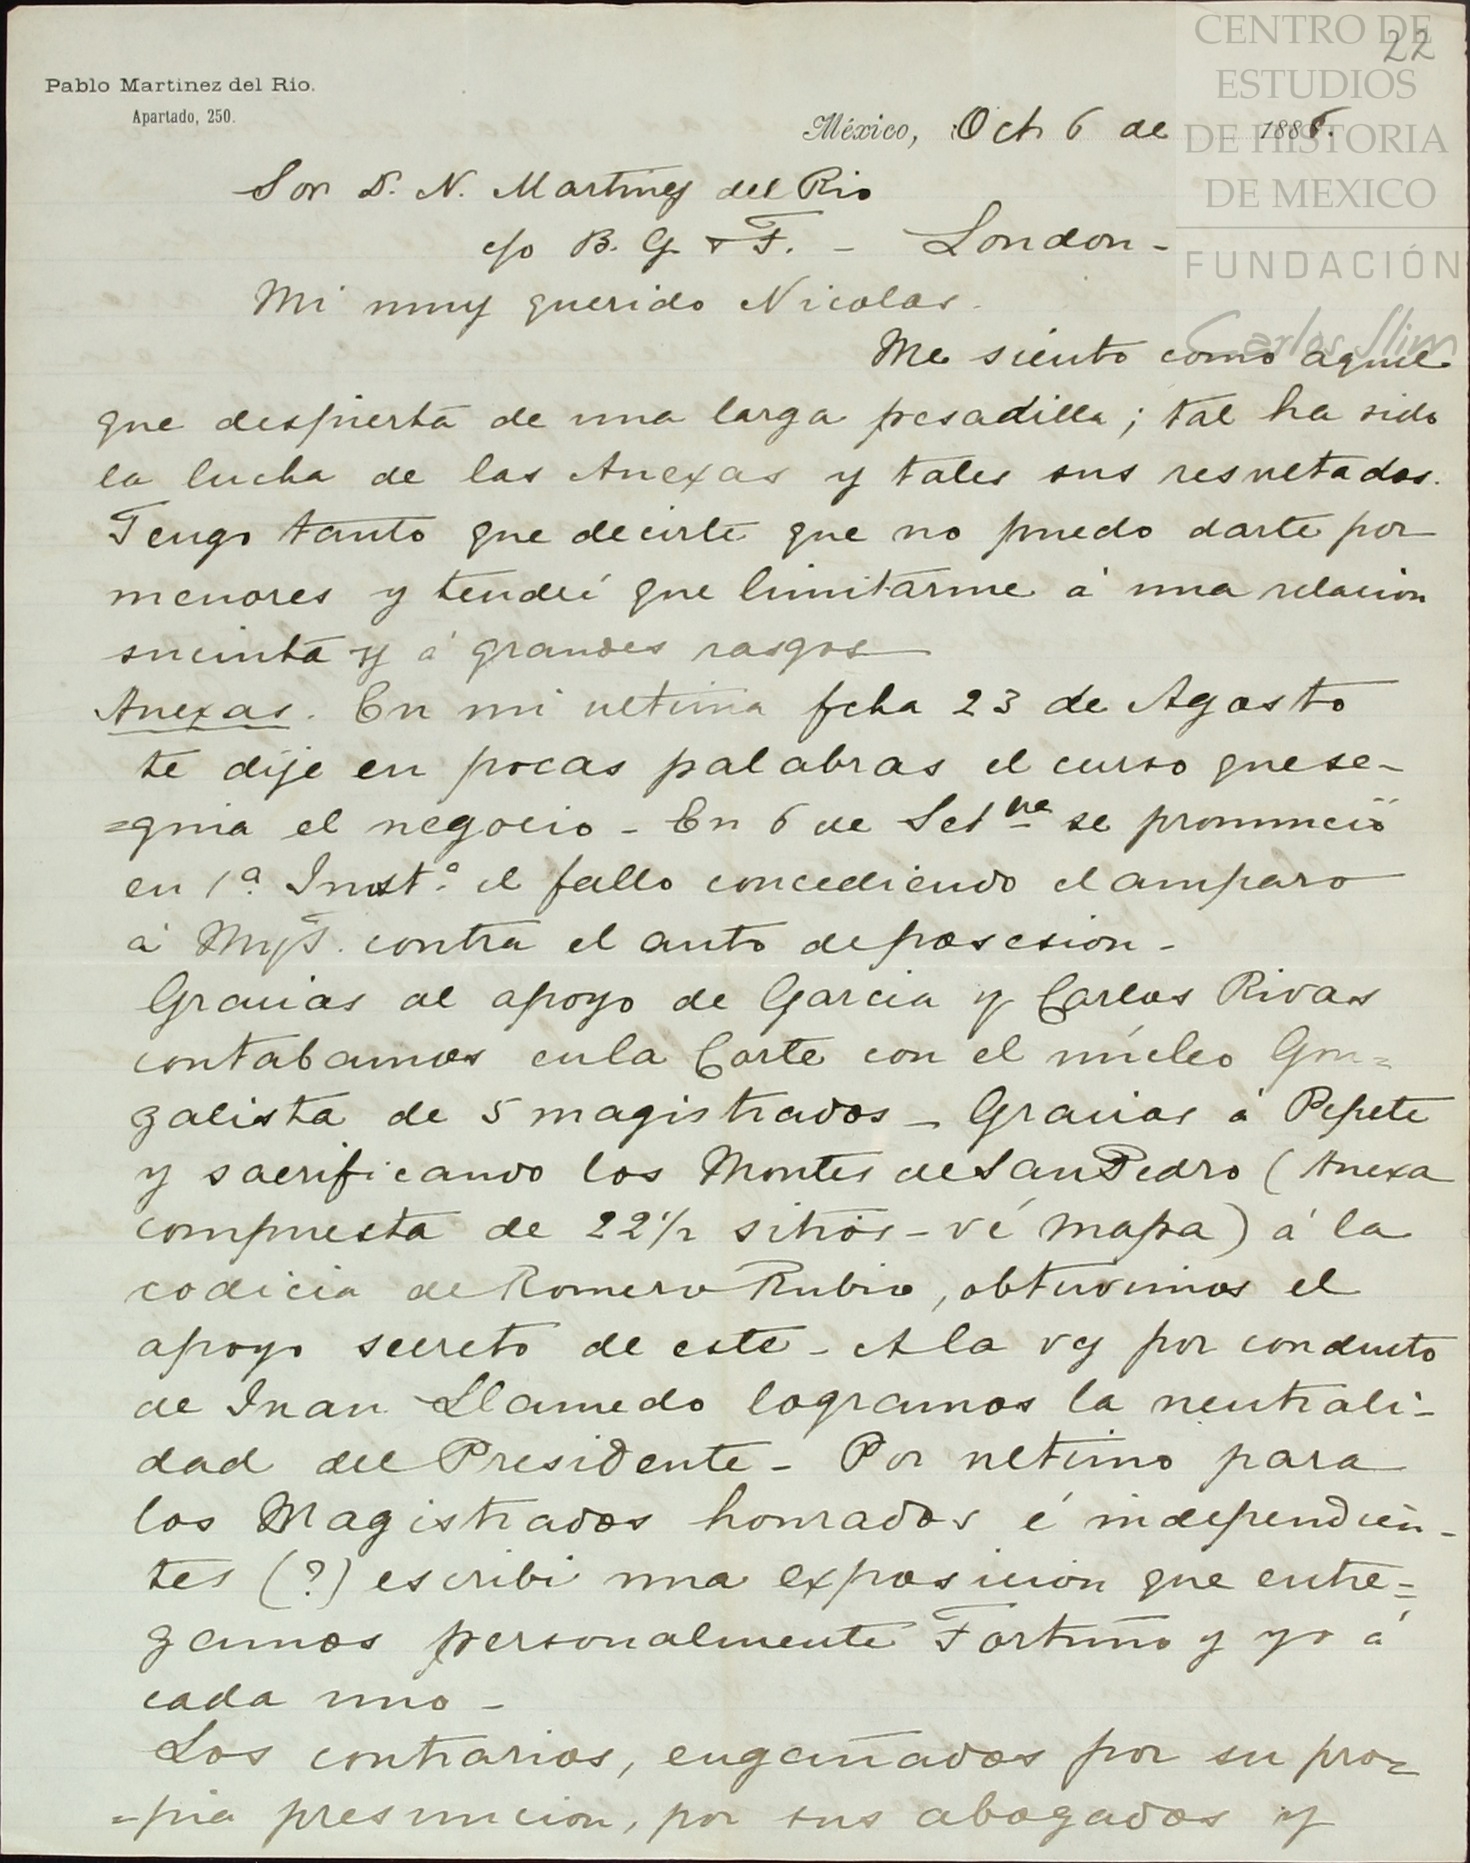 22
CENTRO DE
ESTUDIOS
DE HISTORIA
DE MEXICO
FUNDACIÓN
Carlos Slim
Pablo Martinez del Rio.
Apartado, 250.
México, Oct 6 de 1886.
Sor D. N. Martinez del Rio
c/o B. G. & F. - London -
Mi muy querido Nicolas.
Me siento como aquel
que despierta de una larga pesadilla; tal ha sido
la lucha de las Anexas y tales sus resultados.
Tengo tanto que decirte que no puedo darte por
menores y tendré que limitarme á una relacion
sucinta y á grandes rasgos
Anexas. En mi ultima fcha 23 de Agosto
te dije en pocas palabras el curso que se-
=guia el negocio - En 6 de Setbre se pronunció
en 1ª Inst.ª el fallo concediendo el amparo
á contra el auto de posesion -
Gracias al apoyo de Garcia y Carlos Rivas
contabamos en la Corte con el núcleo Gon=
zalista de 5 magistrados - Gracias á Pepete
y sacrificando los Montes de San Pedro (Anexa
compuesta de 22 1/2 sitios - vé mapa) á la
codicia de Romero Rubio, obtuvimos el
apoyo secreto de este - A la vez por conducto
de Juan Llamedo logramos la neutrali-
dad del Presidente - Por ultimo para
los Magistrados honrados é independien-
tes (?) escribi una exposicion que entre=
gamos personalmente Fortuño y yo á
cada uno -
Los contrarios, engañados por su pro=
=pia presuncion, por sus abogados y